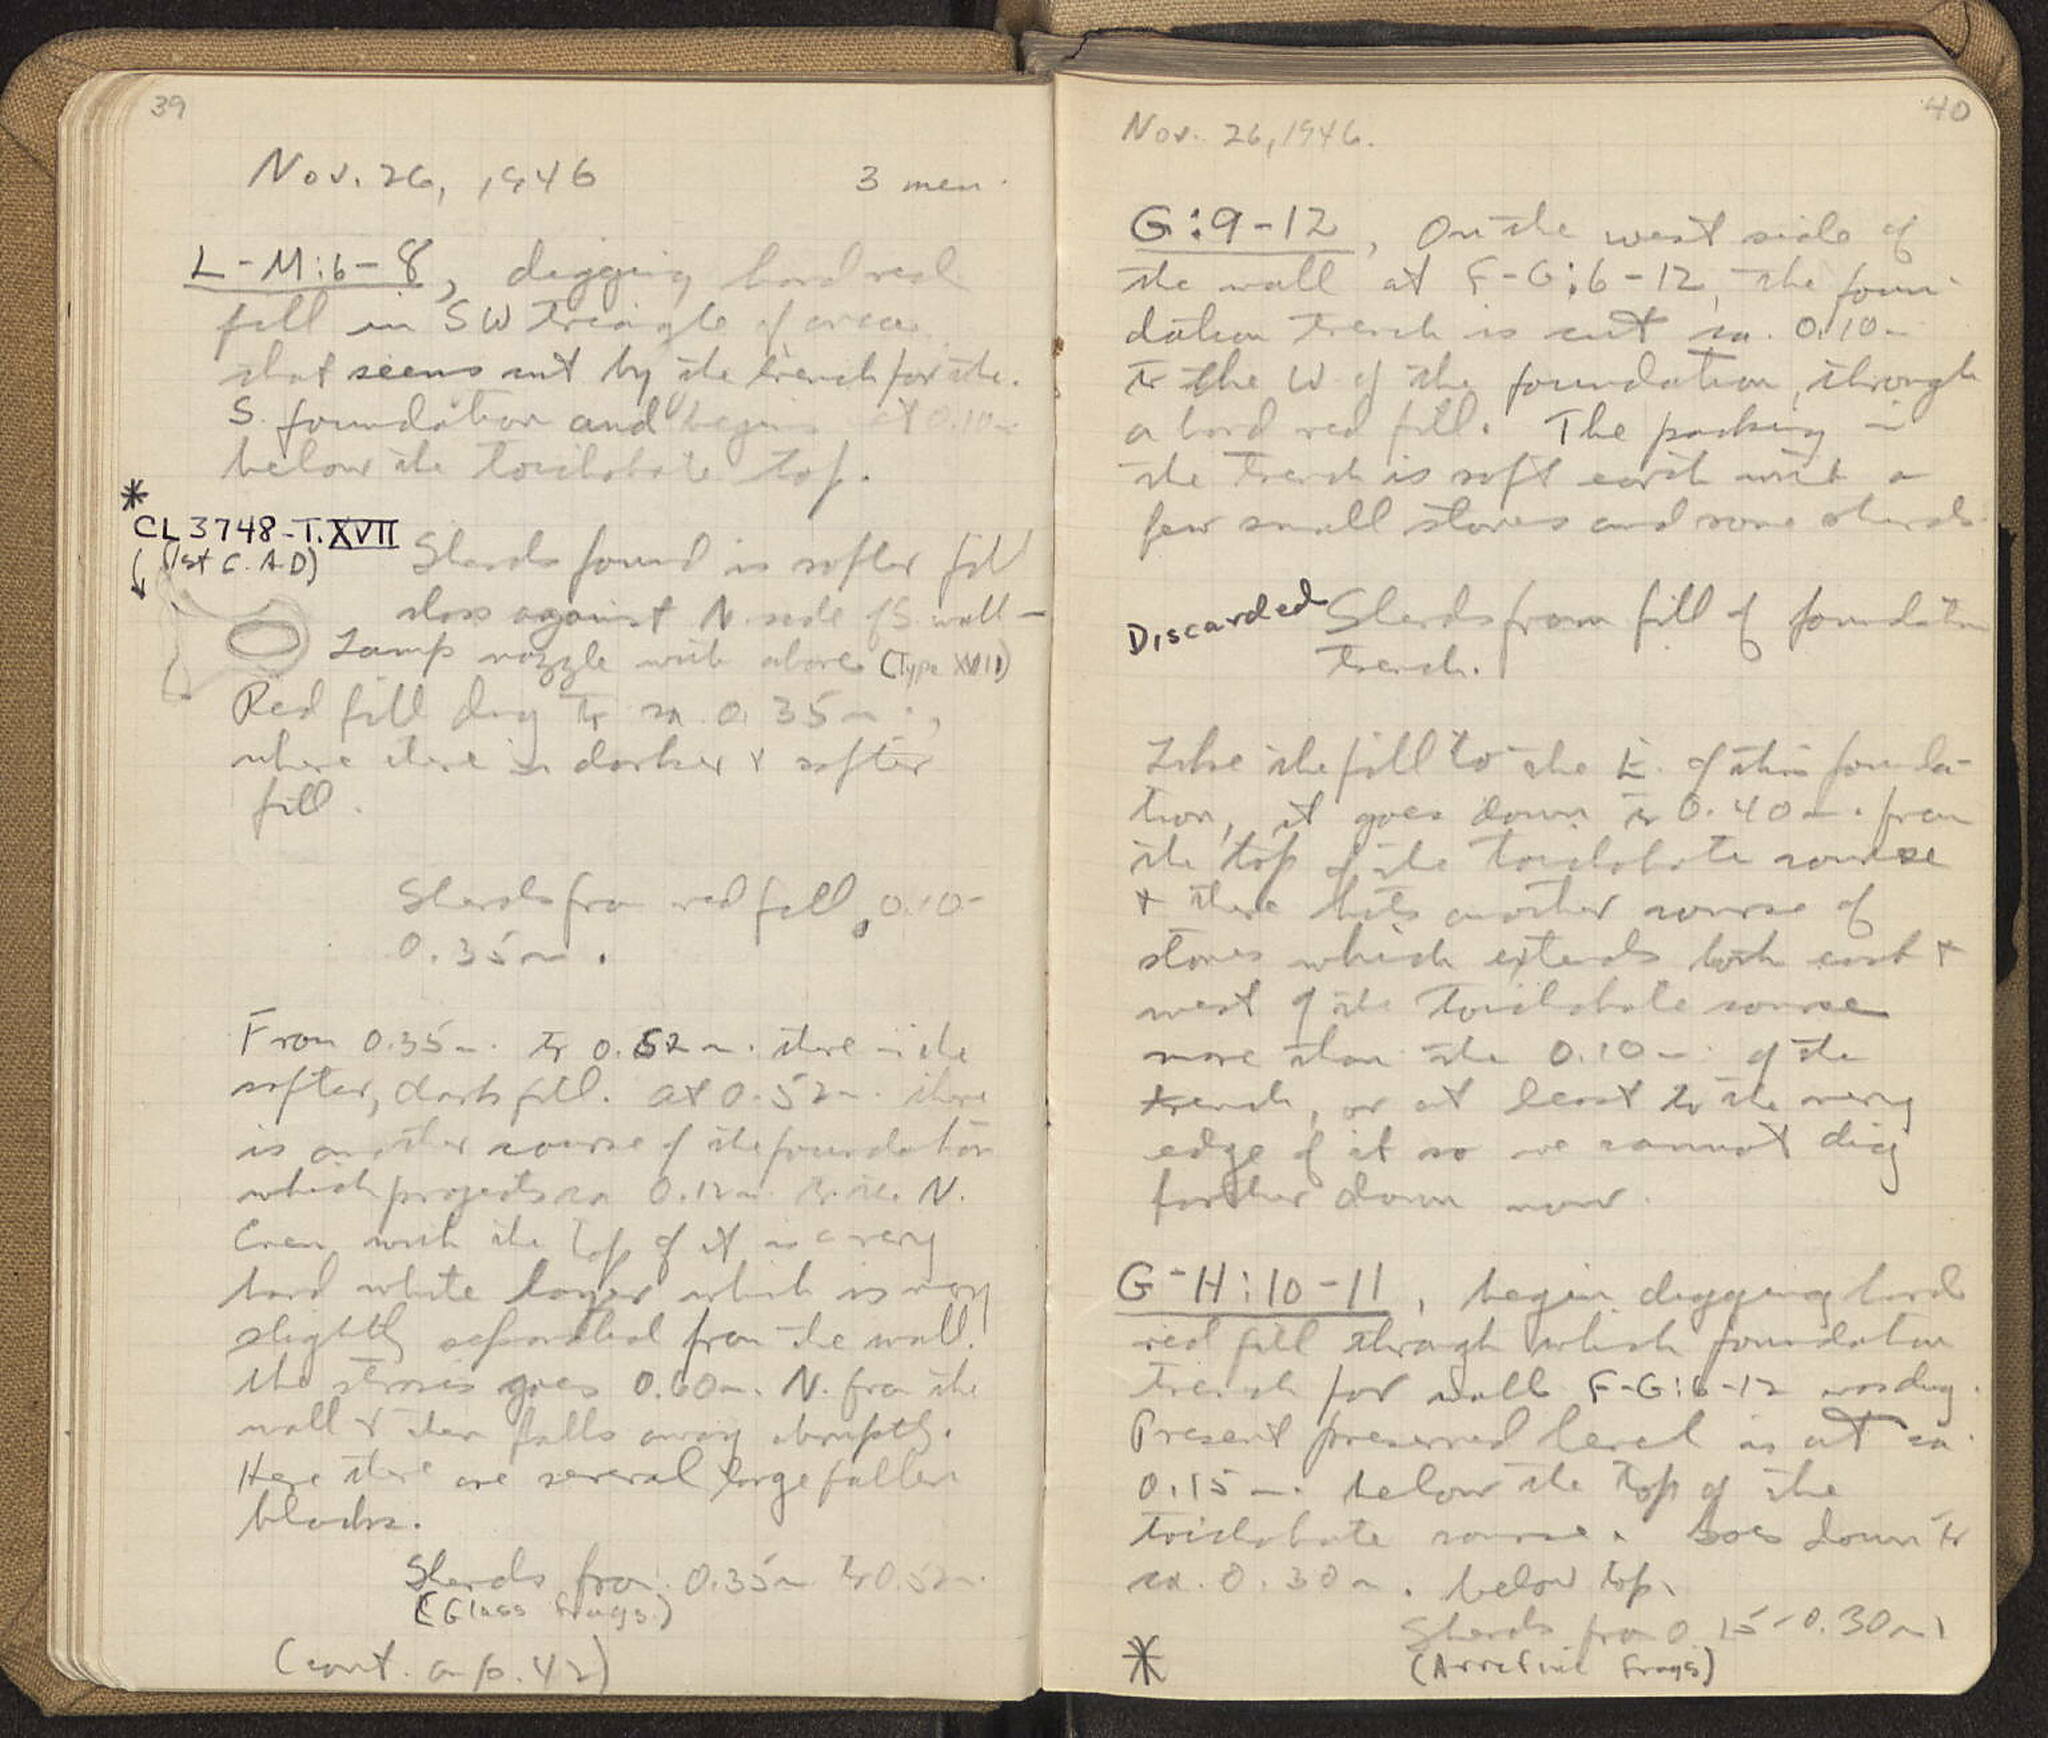 39
Nov. 26, 1946 3 men.
L-M:6-8, digging hard red
fill in SW triangle of area
that seems cut by the trench for the
S. foundation and begins at 0.10m
below the toichobate top.
*
CL 3748-T.XVII
(1st C. A.D)
Sherds found in softer fill
close against N. side of S. wall -
Lamp nozzle with above (Type XVII)
Red fill dug to ca. 0.35m.,
where there is darker & softer
fill.
Sherds from red fill, 0.10-
0.35m.
From 0.35m. to 0.52m. there is the
softer, dark fill. At 0.52m. there
is another course of the foundation
which projects ca 0.12m. to the N.
Even with the top of it is a very
hard white layer which is very
slightly separated from the wall.
The stosis goes 0.60m. N. from the
wall & then falls away abruptly.
Here there are several large fallen
blocks.
Sherds from 0.35m to 0.52m.
(Glass frags.)
(cont. on p. 42)
40
Nov. 26, 1946.
G:9-12, On the west side of
the wall at F-G:6-12, the foun-
dation trench is cut ca. 0.10m
to the W of the foundation, through
a hard red fill. The packing in
the trench is soft earth with a
few small stones and some sherds.
Discarded Sherds from fill of foundation
trench.
Like the fill to the E. of this founda-
tion, it goes down to 0.40m. from
the top of the toichobate course
& there hits another course of
stones which extends both east &
west of the toichobate course
more than the 0.10m. of the
trench, or at least to the very
edge of it so we cannot dig
further down now.
G-H:10-11, begin digging hard
red fill through which foundation
trench for wall F-G:6-12 was dug.
Present preserved level is at ca.
0.15m. below the top of the
toichobate course. Goes down to
ca. 0.30m. below top.
Sherds from 0.15-0.30m.
* (Arretine frags)